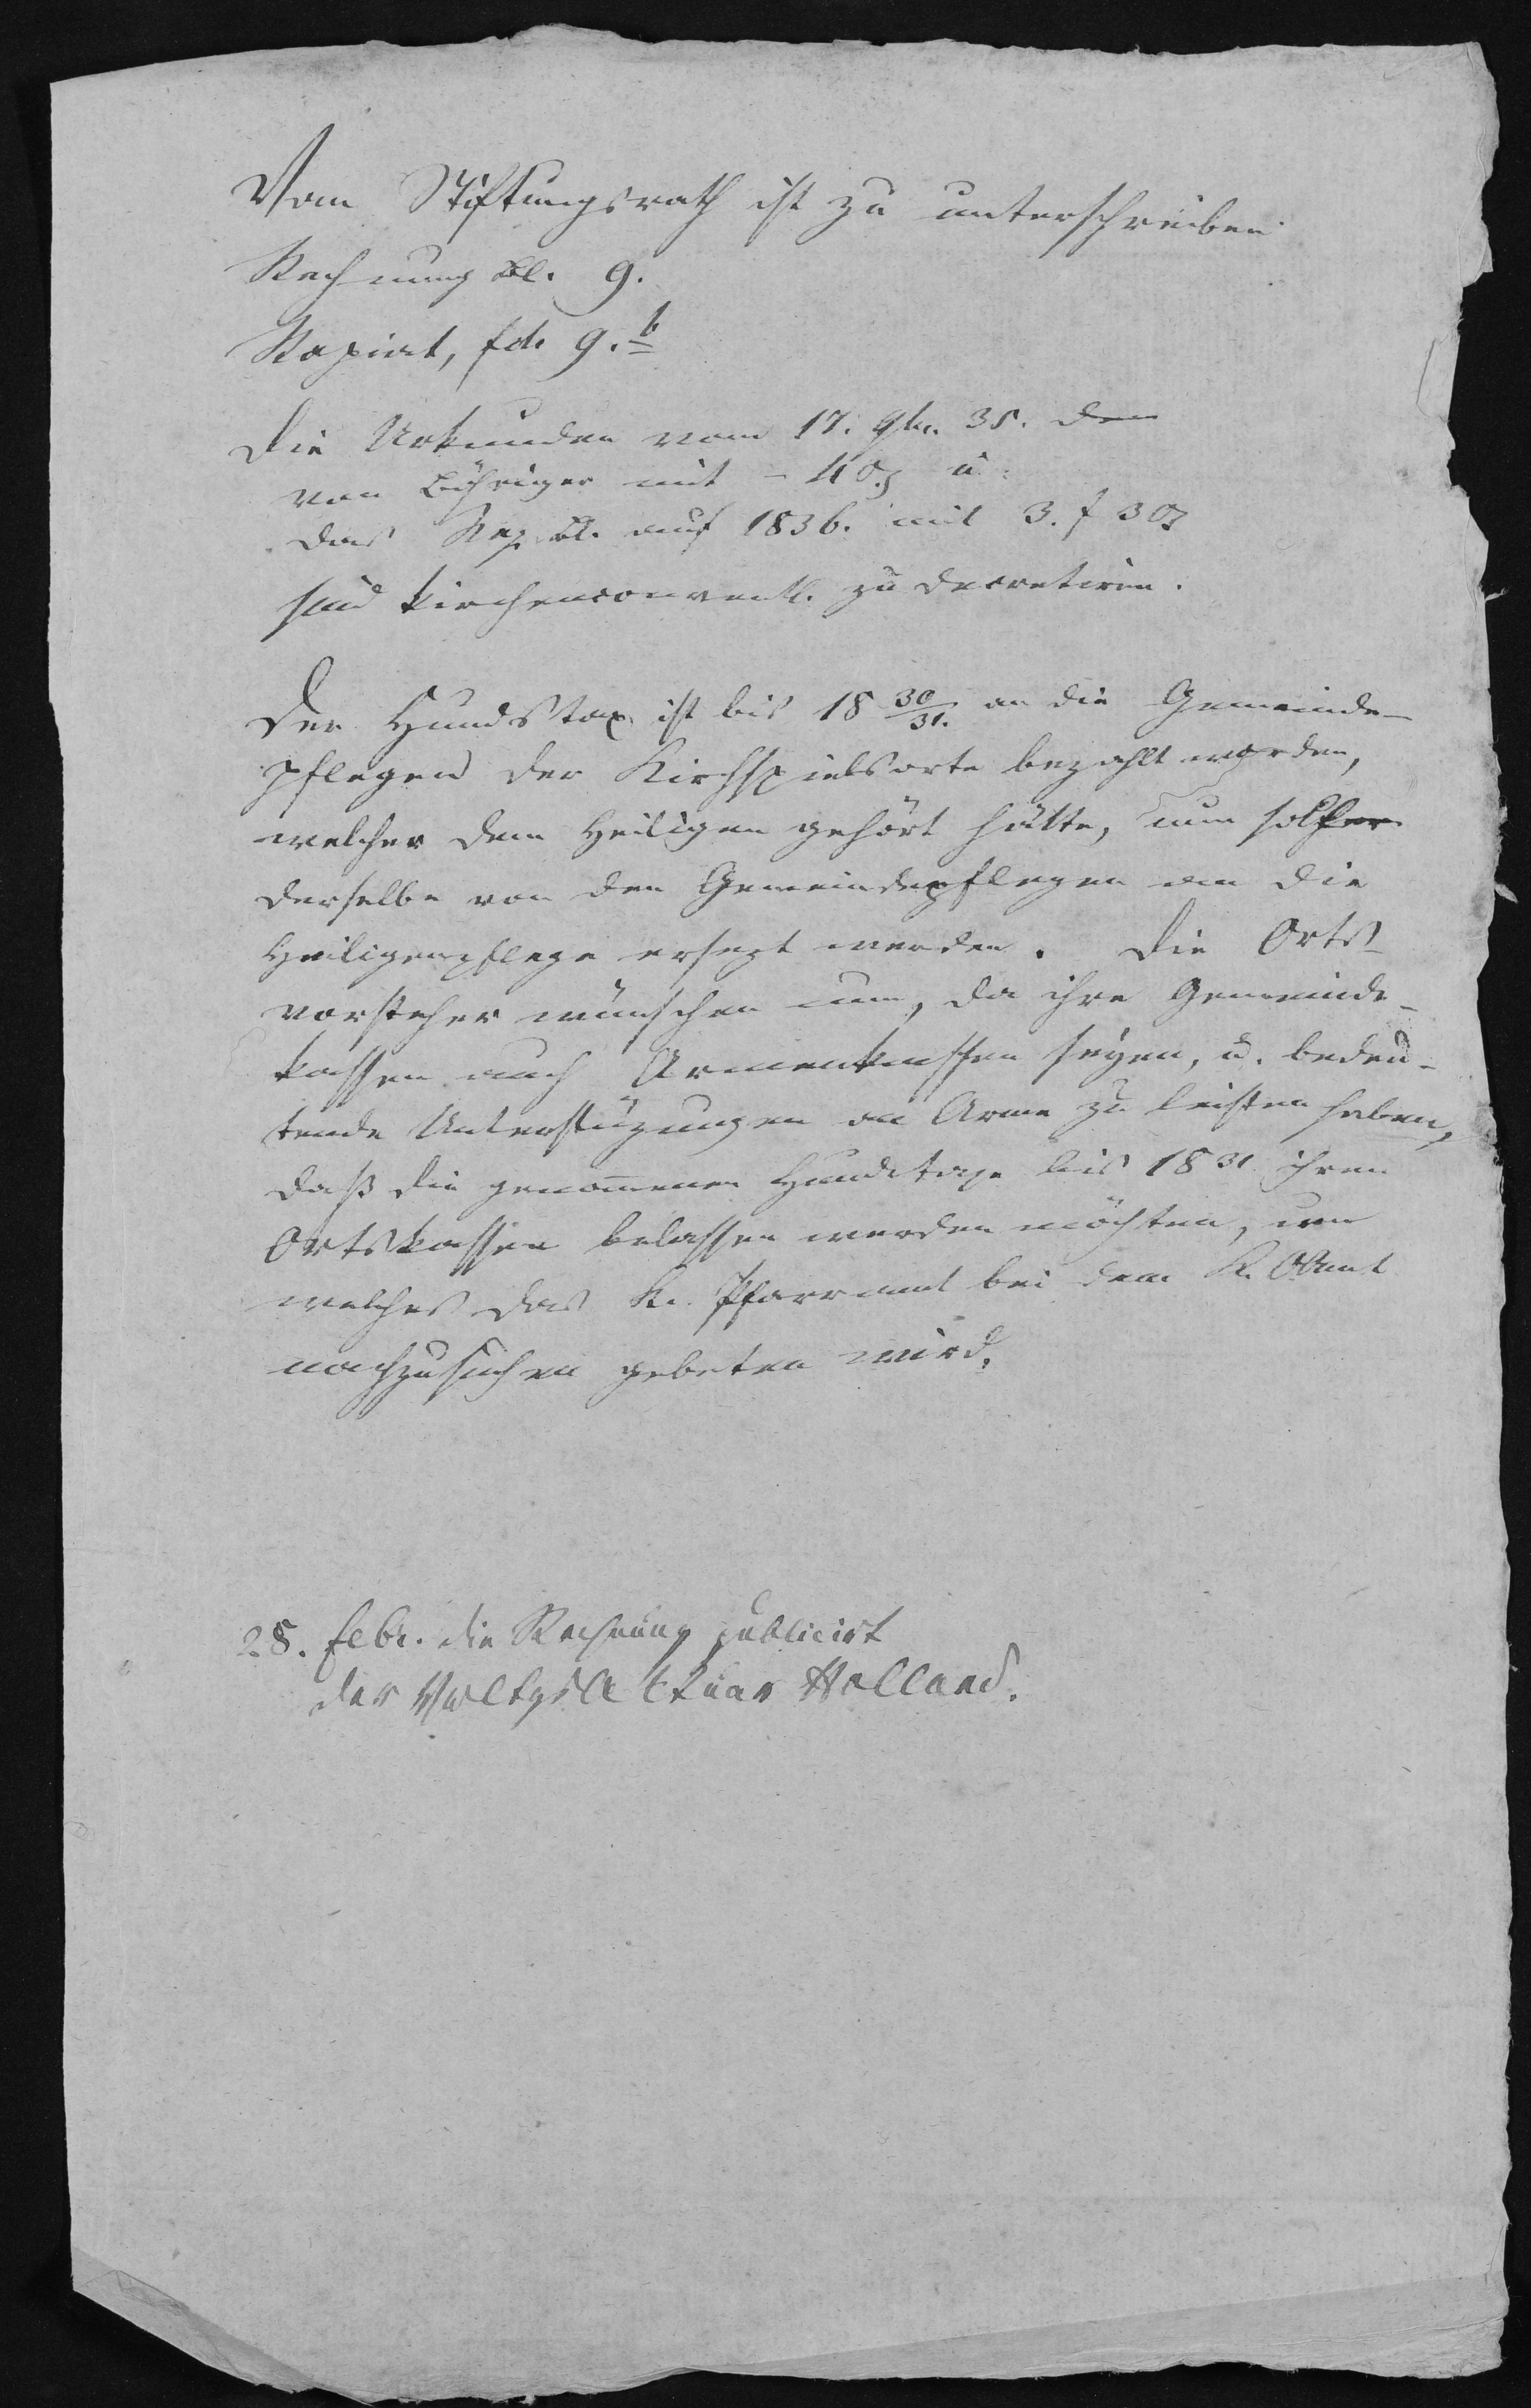 Vom Stiftungsrath ist zu unterschreiben
Rechnung Bl. 9.
Rapiat, fol. 9.b
Die Urkunden vom 17. 9br. 35. den
von Bühringer mit - 40 x u.
das Reg. Bl. auf 1836. mit 3. f 30 x
sind kirchenconventl. zu decretiren.
Der Hundstax. ist bis 18 30/31. an die Gemeinde-
pflegen der Kirchspielsorte bezahlt worden,
welcher dem Heiligen gehört hätte, nun solle
derselbe von den Gemeindepflegen an die
Heiligenpflege ersezt werden. Die Orts-
vorsteher wünschen nun, da ihre Gemeinde-
kassen auch Armenkassen seyen, u. bedeu-
tende Unterstüzungen an Arme zu leisten haben,
daß die genommenen Hundstaxe bis 1831 ihren
Ortskassen belassen werden möchten, um
welches das K. Pfarramt bei dem K. OAmt
nachzusuchen gebeten wird.
28. Febr. die Rechnung publicirt
der Verwltgs Aktuar Holland.